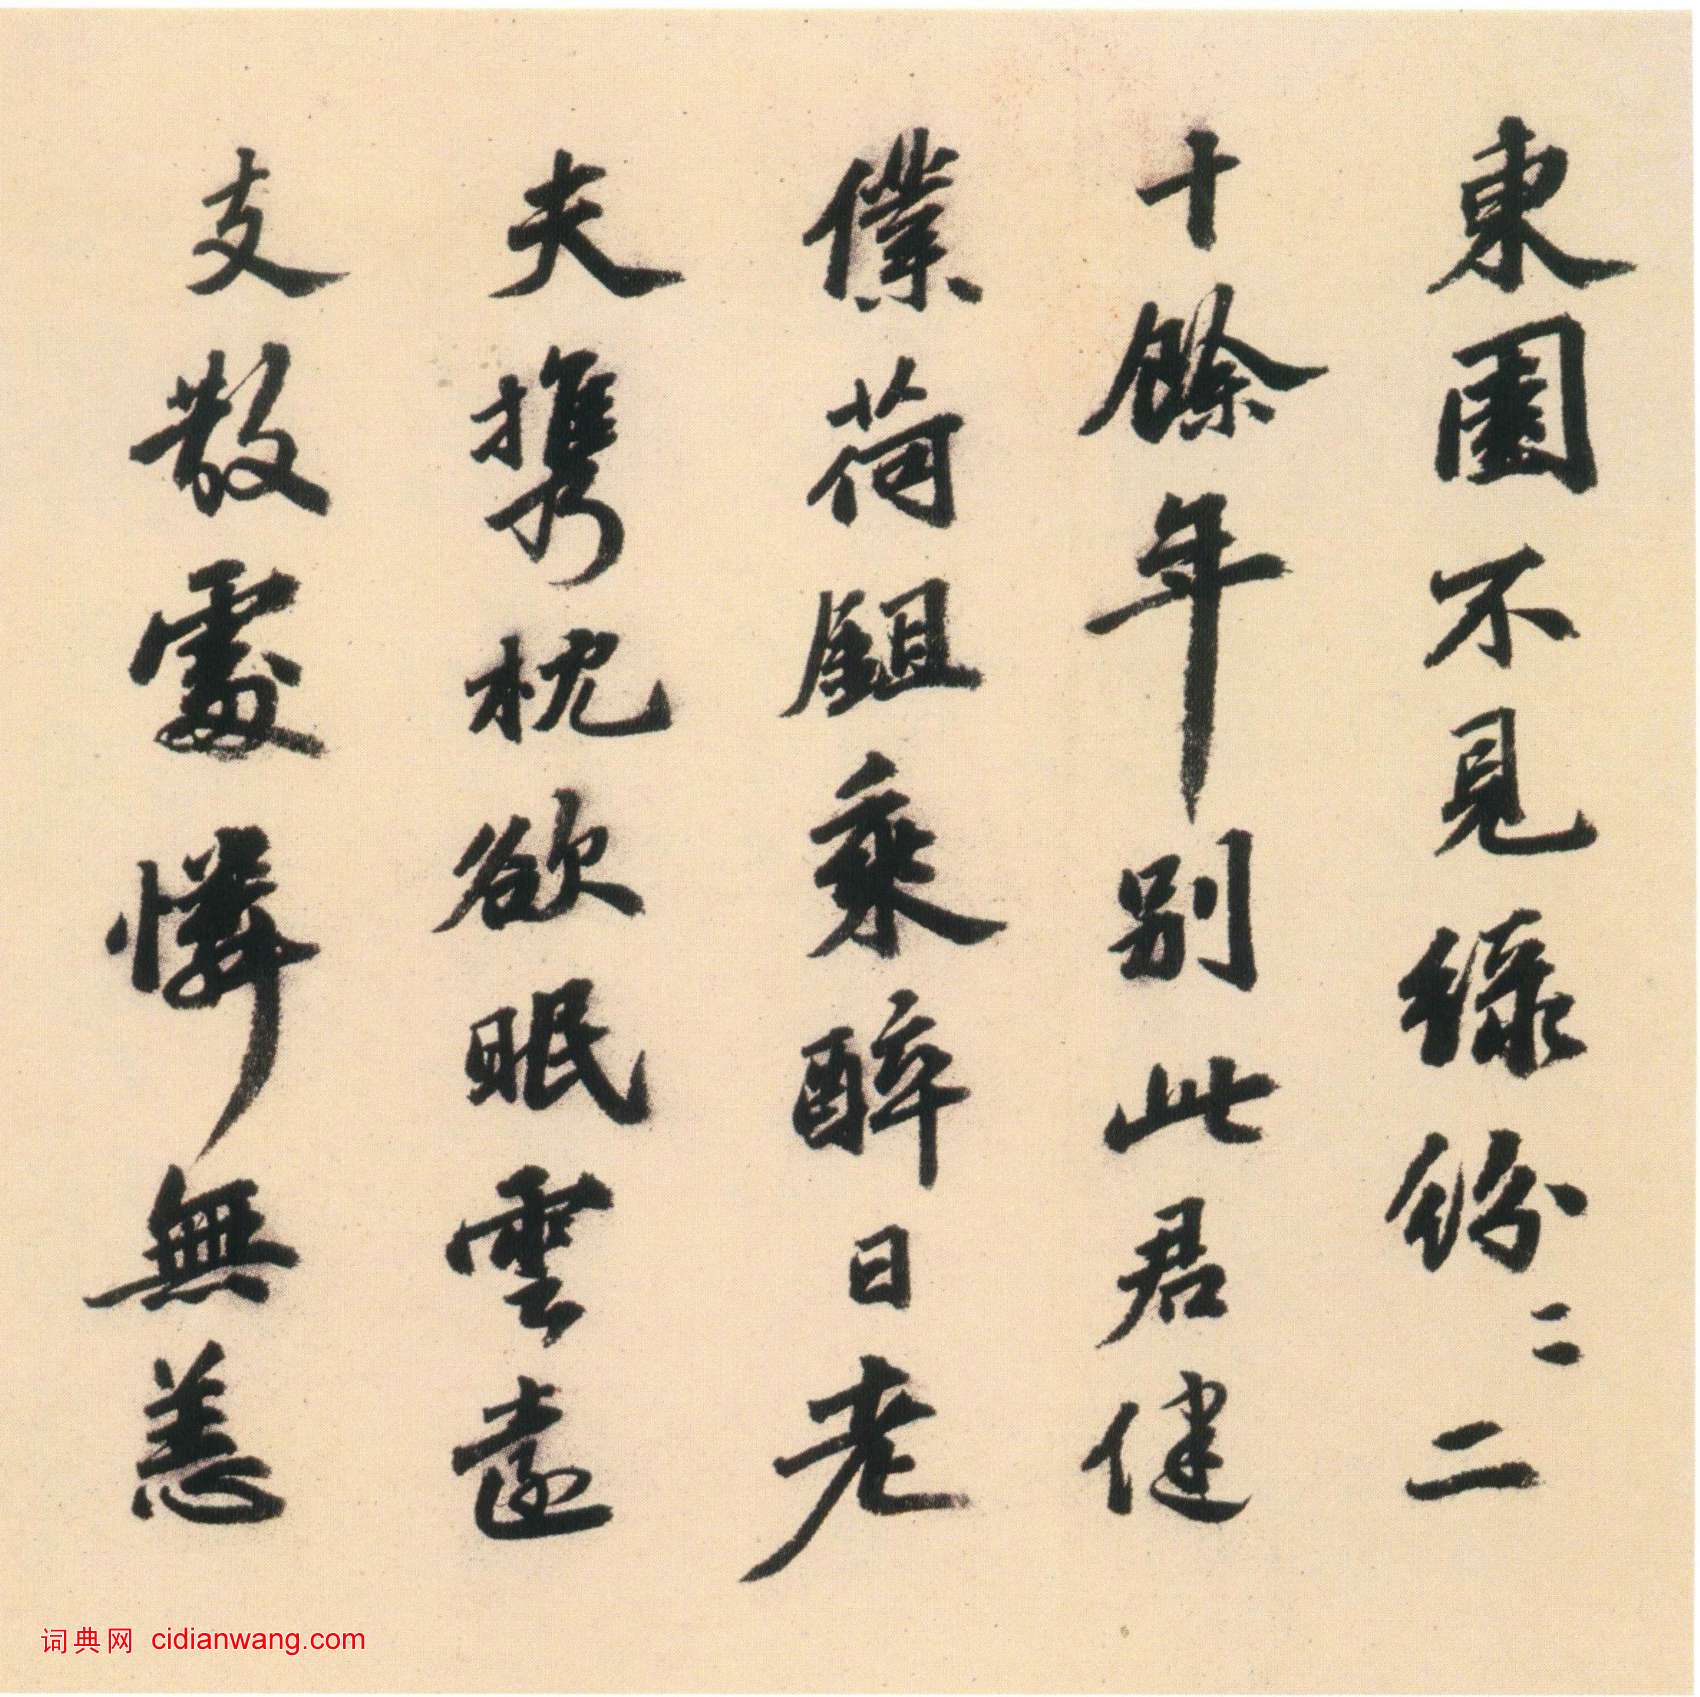 東園不見緑紛〻二
十餘年别此君健
僕荷鉏乘醉日老
夫携枕欲眠雲遠
支散處憐無恙
词典网 cidianwang.com